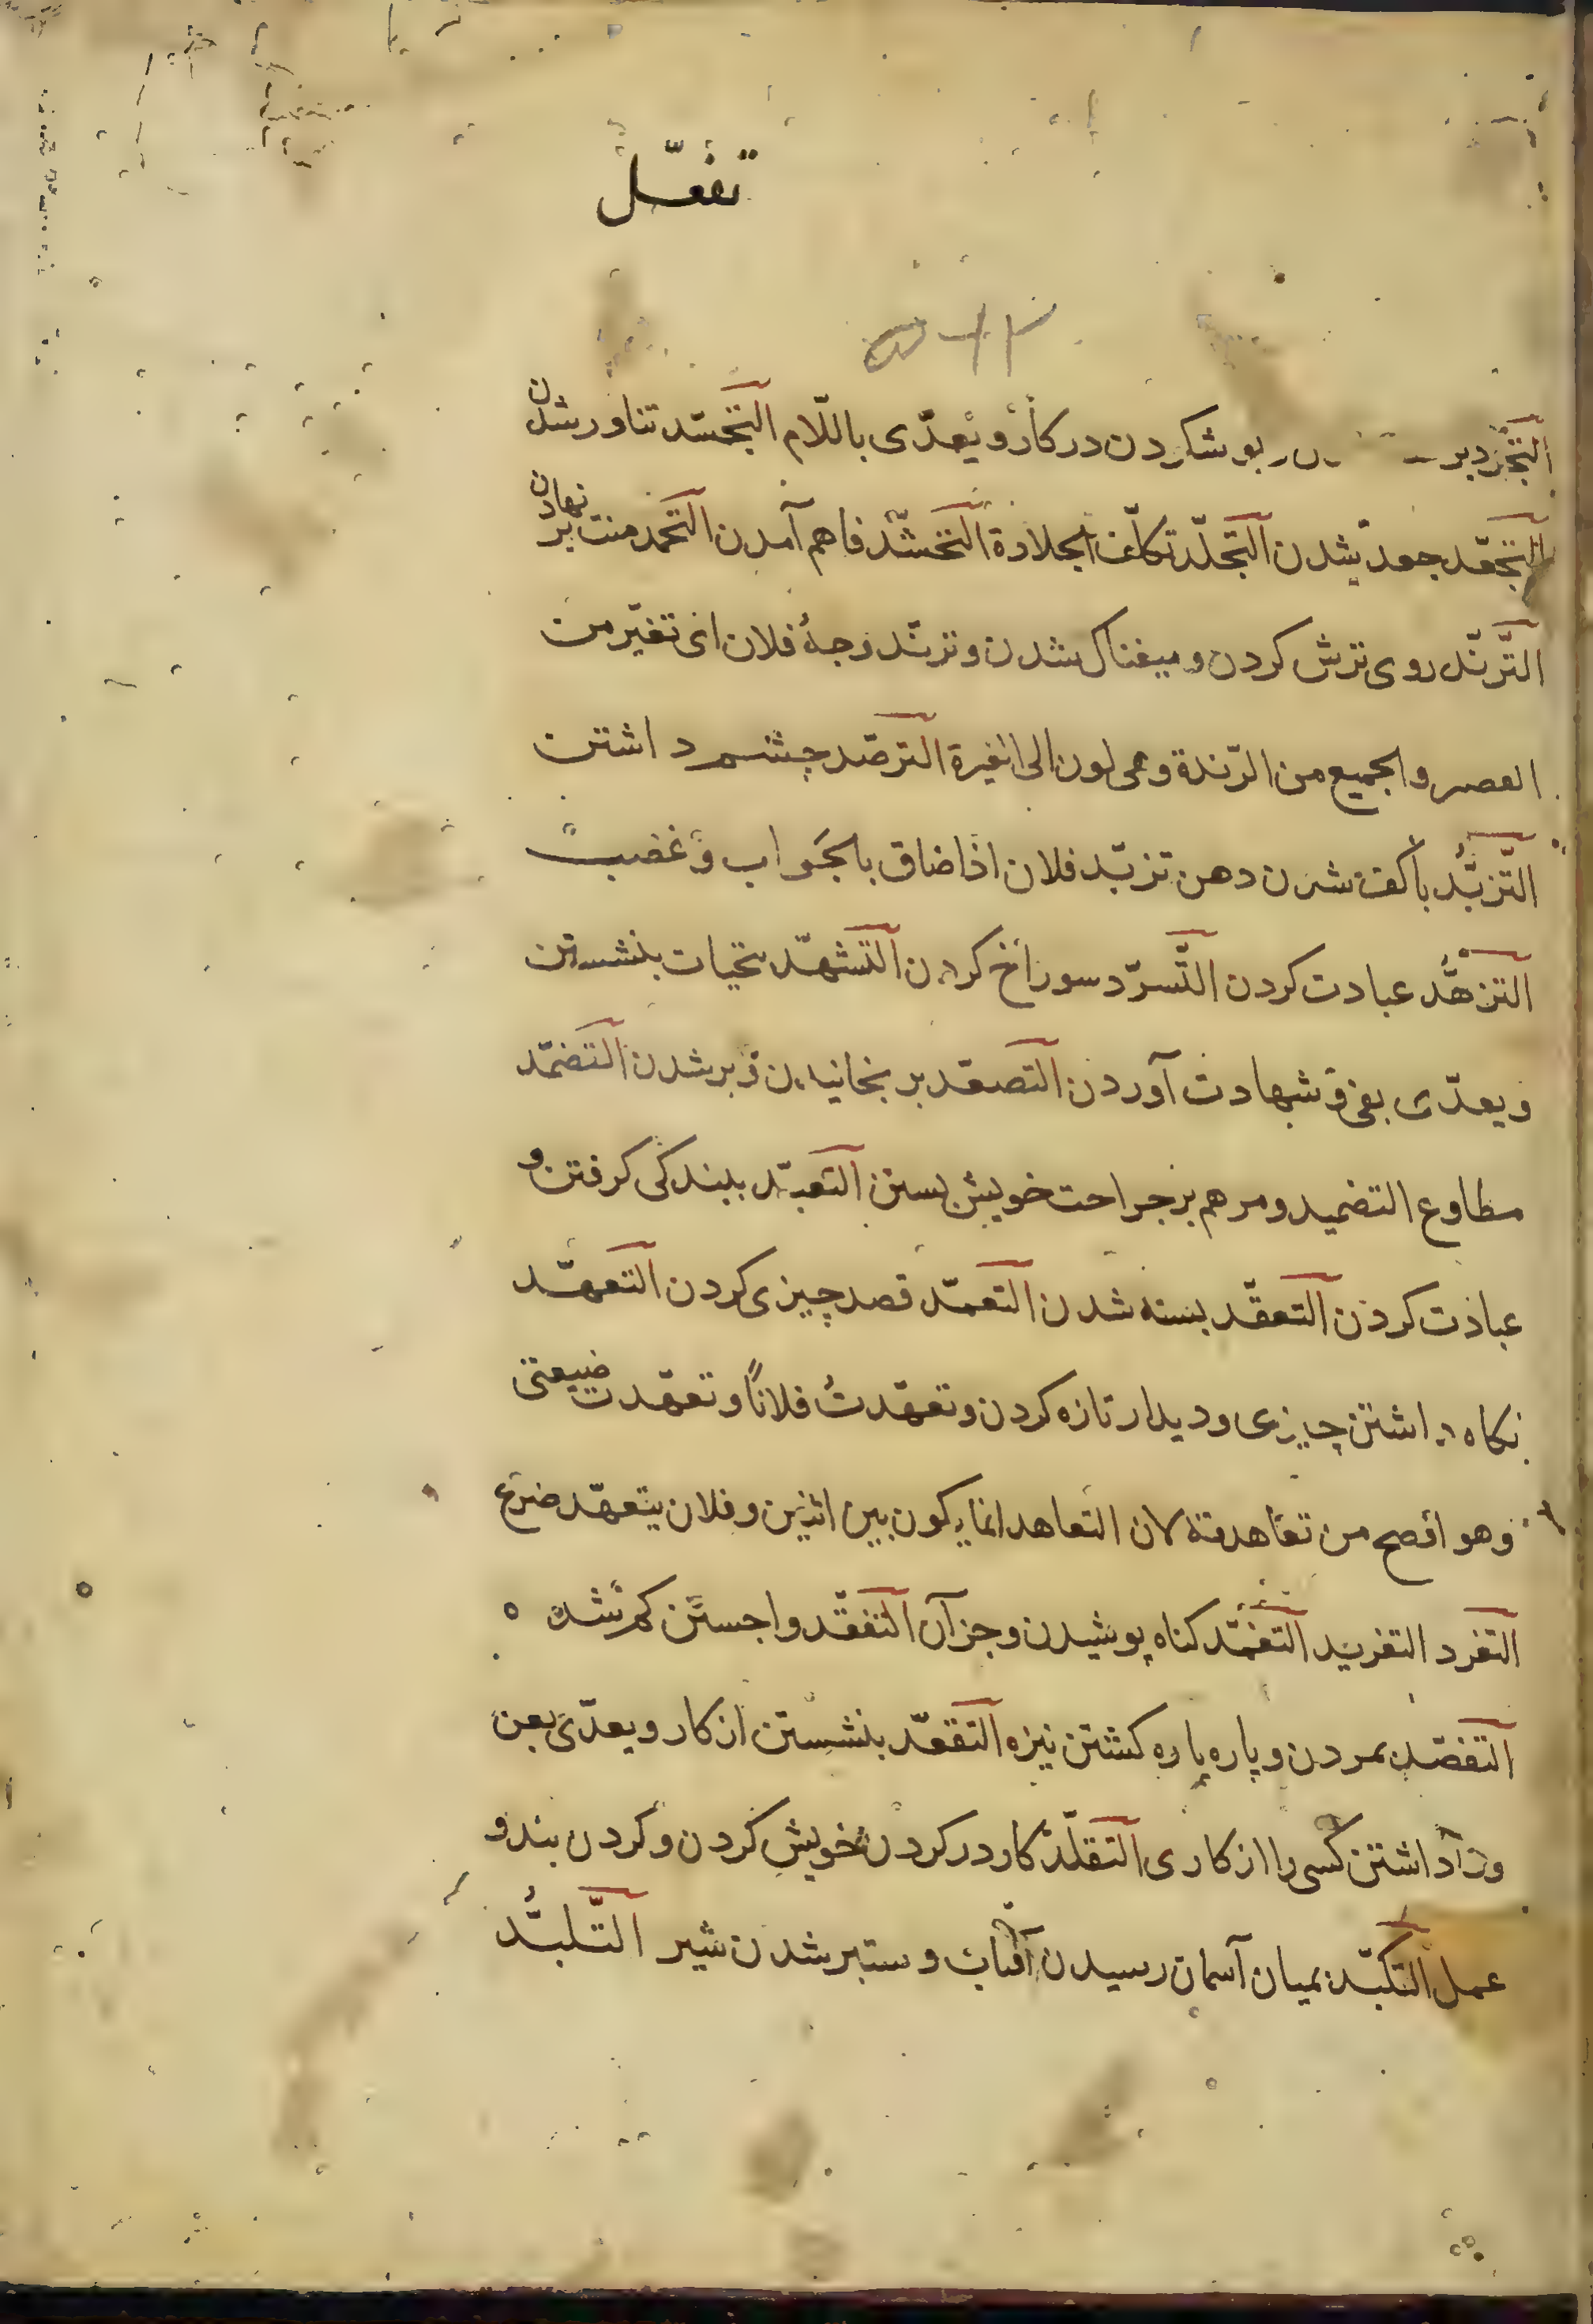 تفعّل
التجرّد بر در بوشکردن در کار و یعدّی باللّام التجسّد تناور شدن
التجعّد جعد شدن التجلّد تکلّف الجلادة التحشّد فاهم آمدن التحمد منت بر نهادن
التّربّد روی ترش کردن و میغناک شدن و تربّد وجهُ فلان ای تغیّر من
العصر والجمیع من الرّبدة وهی لون الی الغبرة الترصّد چشم داشتن
التّزبُّد باکف شدن دهن تزبّد فلان اذا ضاق بالجَواب وغضب
التزهُّد عبادت کردن التّسرّد سوراخ کردن التشهّد بتحیات بنشستن
و یعدّی بفی و شهادت آوردن التصعّد برنجانیدن و بر شدن التضمّد
مطاوع التضمید و مرهم بر جراحت خویش بستن التعبّد ببندکی کرفتن و
عباذت کردن التعقّد بسته شدن التعمّد قصد چیزی کردن التعهّد
نکاه داشتن چیزی و دیدار تازه کردن و تعهّدتُ فلاناً و تعهّدت ضیعتی
وهو افصح من تعاهدته لان التعاهد انما یکون بین اثنین و فلان یتعهّد ضرع
التفرد التفرید التغمُّد کناه پوشیدن و جز آن التفقّد واجستن کم شده
التفصّد بمردن و پاره پاره کشتن نیزه التقعّد بنشستن از کار و یعدّی بعن
و زاداشتن کسی را از کاری التقلّد کار در کردن خویش کردن و کردن بند و
عمل التکبّد بمیان آسمان رسیدن آفتاب و ستبر شدن شیر التّلبُّد